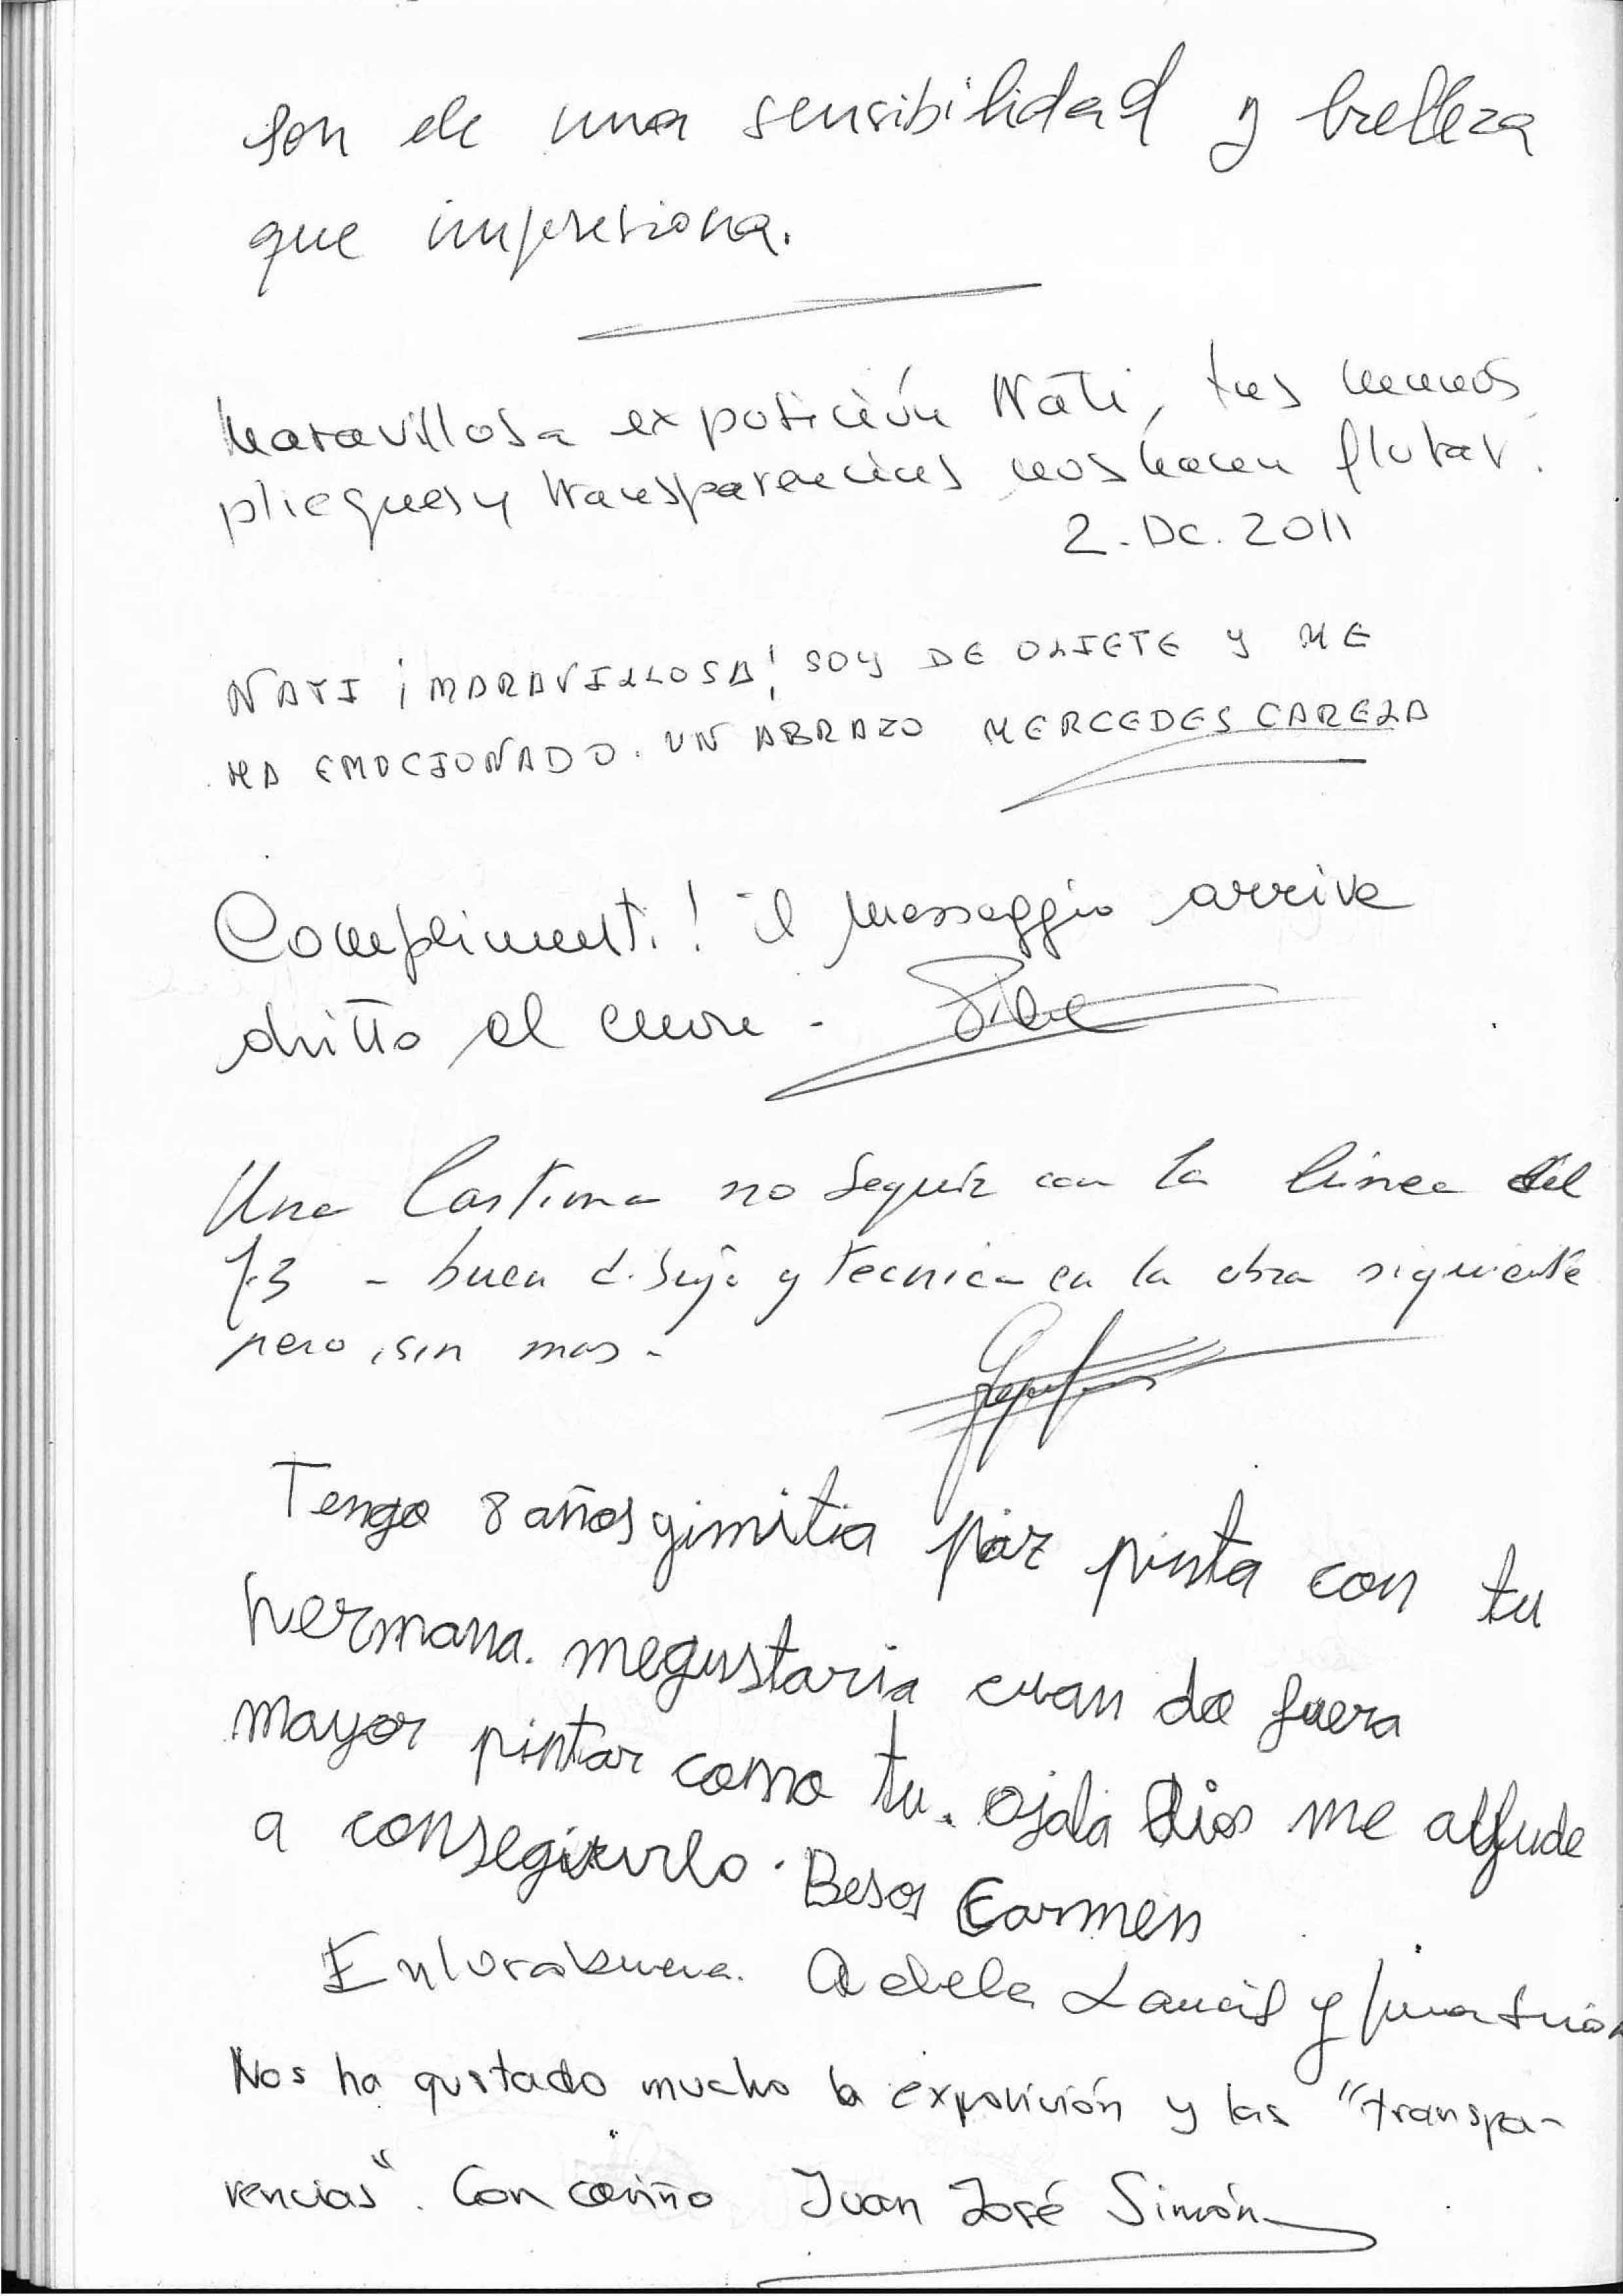 son de una sensibilidad y belleza
que impresiona.
Maravillosa exposición Nati, tus manos,
pliegues y transparencias nos hacen flotar.
2. Dc. 2011
NATI ¡MARAVILLOSA! SOY DE OLIETE Y ME
HA EMOCIONADO. UN ABRAZO MERCEDES CARELA
Complimenti! il messaggio arriva
dritto al cuore -
Una lastima no seguir con la linea del
73 - buen dibujo y tecnica en la obra siguiente
pero, sin mas -
Tengo 8 años y mi tia pinta con tu
hermana. megustaria cuan do fuera
mayor pintar como tu. Ojala Dios me allude
a consegirlo. Besos Carmen
Enhorabuena. Adela y
Nos ha gustado mucho la exposición y las "transpa-
rencias". Con cariño Juan José Simón